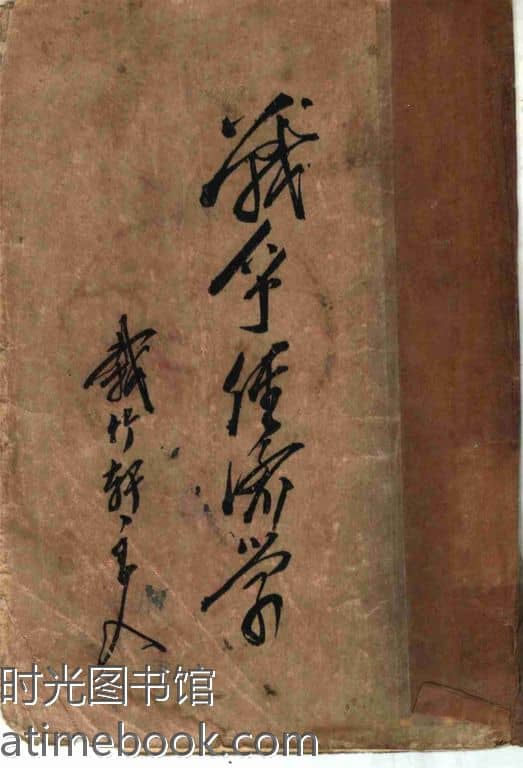 戰爭經濟学
栽竹軒主人
时光图书馆
atimebook.com